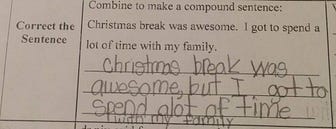 Combine to make a compound sentence:
Correct the Christmas break was awesome. I got to spend a
Sentence lot of time with my family.
Christmas break was
awesome, but I got to
spend alot of time
with my family